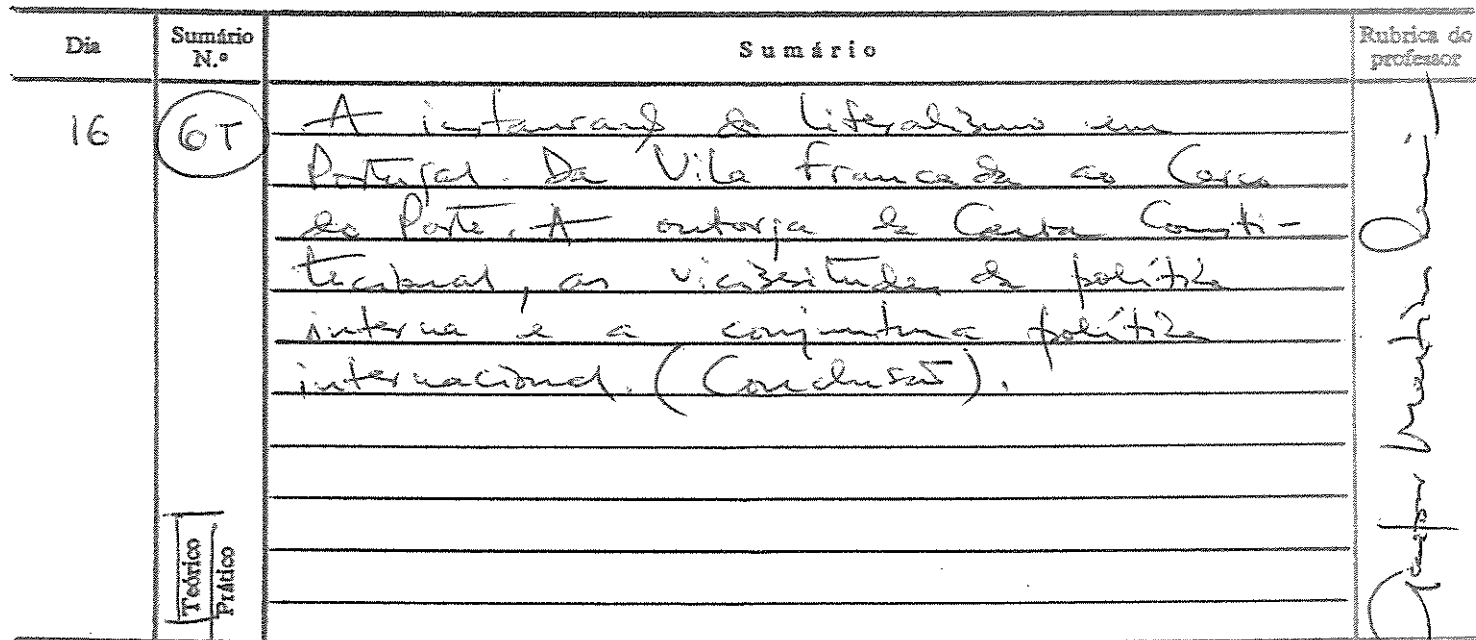 Dia
Sumário N.º
Sumário
Rubrica do professor
16
6T
A instauração do liberalismo em
Portugal. Da Vila Francada ao Cerco
do Porto. A outorga da Carta Consti-
tucional, as vicissitudes da política
interna e a conjuntura política
internacional. (Conclusão).
Teórico
Prático
Martins